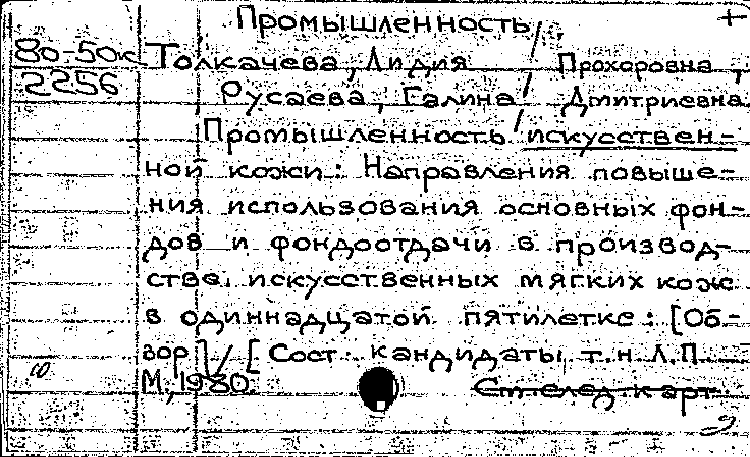 Промышленность
80-50к Толкачева, Лидия Прохоровна,
2256 Русаева, Галина Дмитриевна
Промышленность искусствен-
ной кожи: Направления повыше-
ния использования основных фон-
дов и фондоотдачи в производ-
стве искусственных мягких кож
в одиннадцатой пятилетке: [Об-
зор] / [Сост. кандидаты т.н. Л.П.
10 М., 1980 См. след. карт.